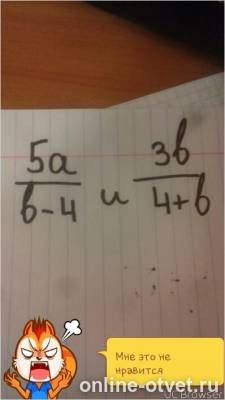 5a/(b-4) и 3b/(4+b)
Мне это не
нравится
UC Browser
online-otvet.ru